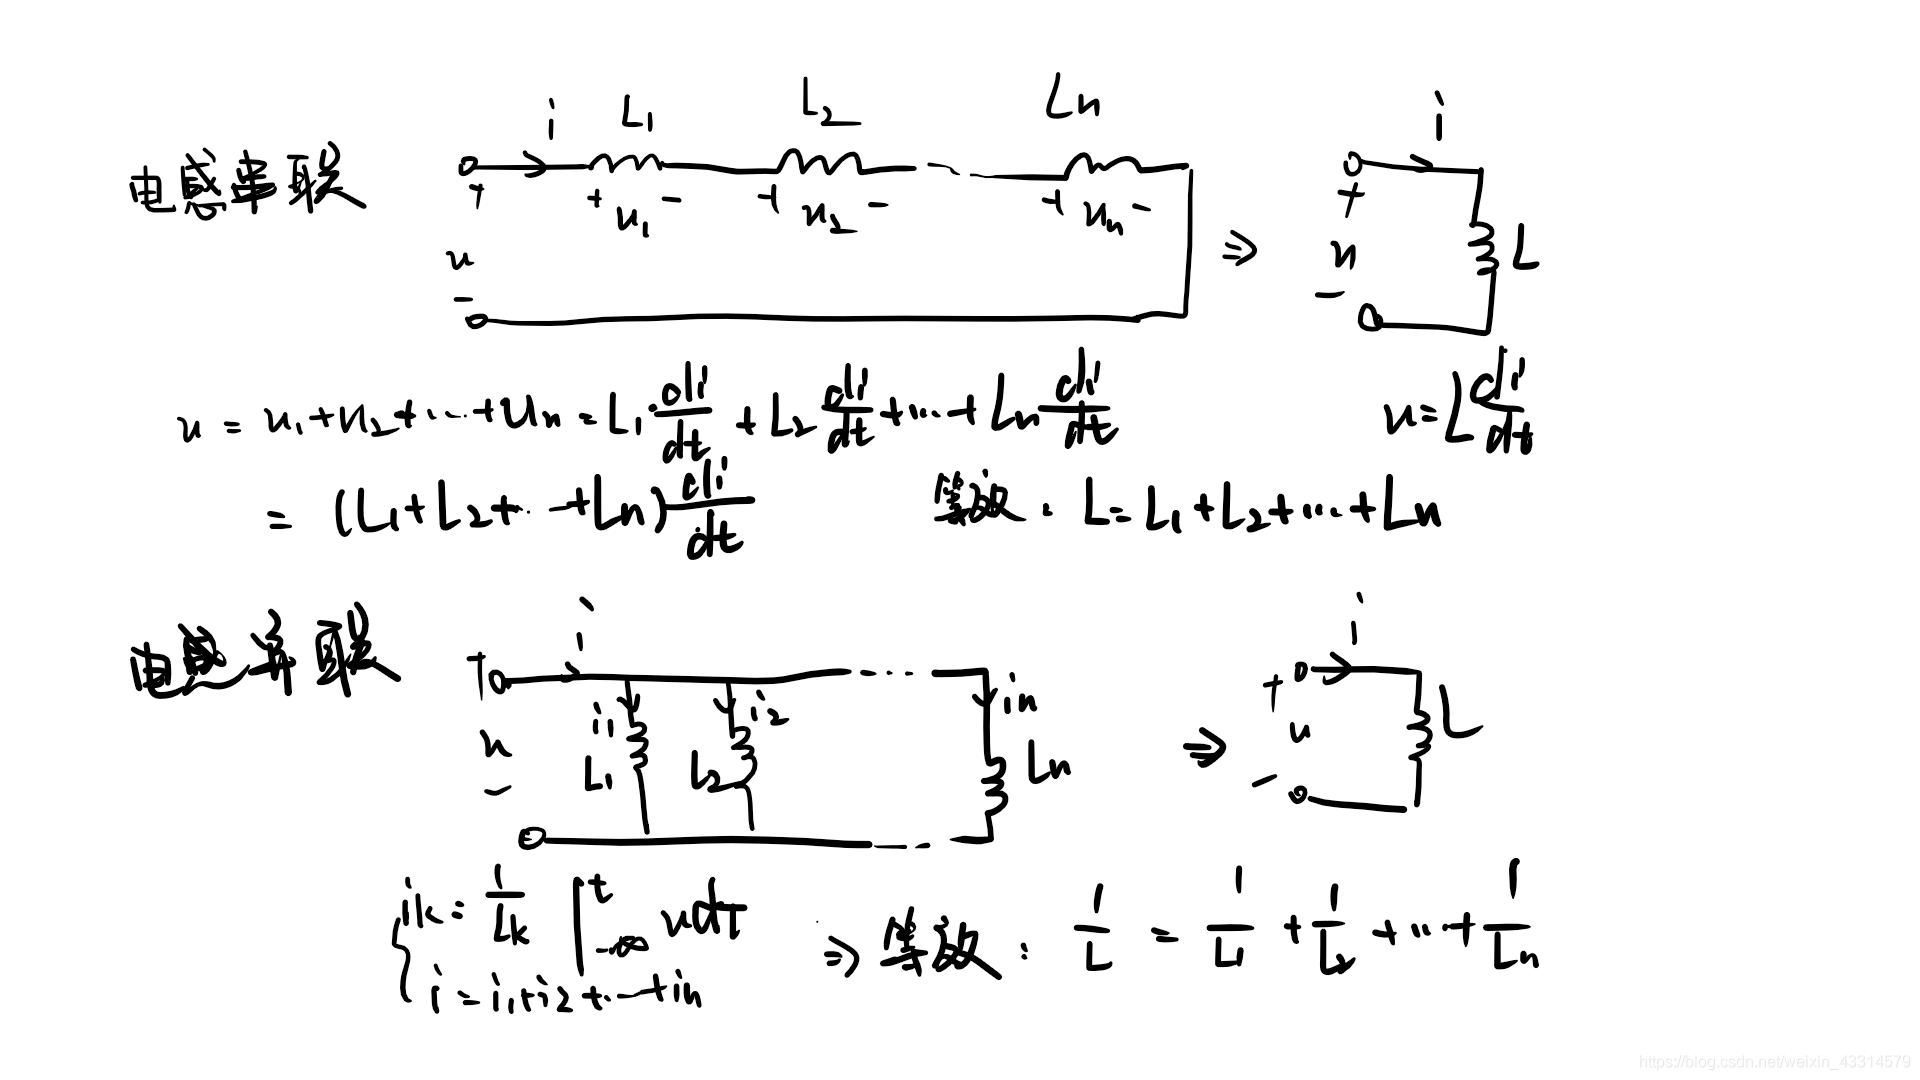 电感串联
i L₁ L₂ Ln i
+ + u₁ - + u₂ - + un - +
u ⇒ u L
- -
u = u₁+u₂+···+un = L₁·di/dt + L₂ di/dt +···+ Ln di/dt u = L di/dt
= (L₁+L₂+···+Ln) di/dt 等效: L = L₁+L₂+···+Ln
电感并联
i i
+ i₁ i₂ in +
u L₁ L₂ Ln ⇒ u L
- -
ik = 1/Lk ∫_{-∞}^{t} udt ⇒ 等效: 1/L = 1/L₁ + 1/L₂ +···+ 1/Ln
i = i₁+i₂+···+in
https://blog.csdn.net/weixin_43314579